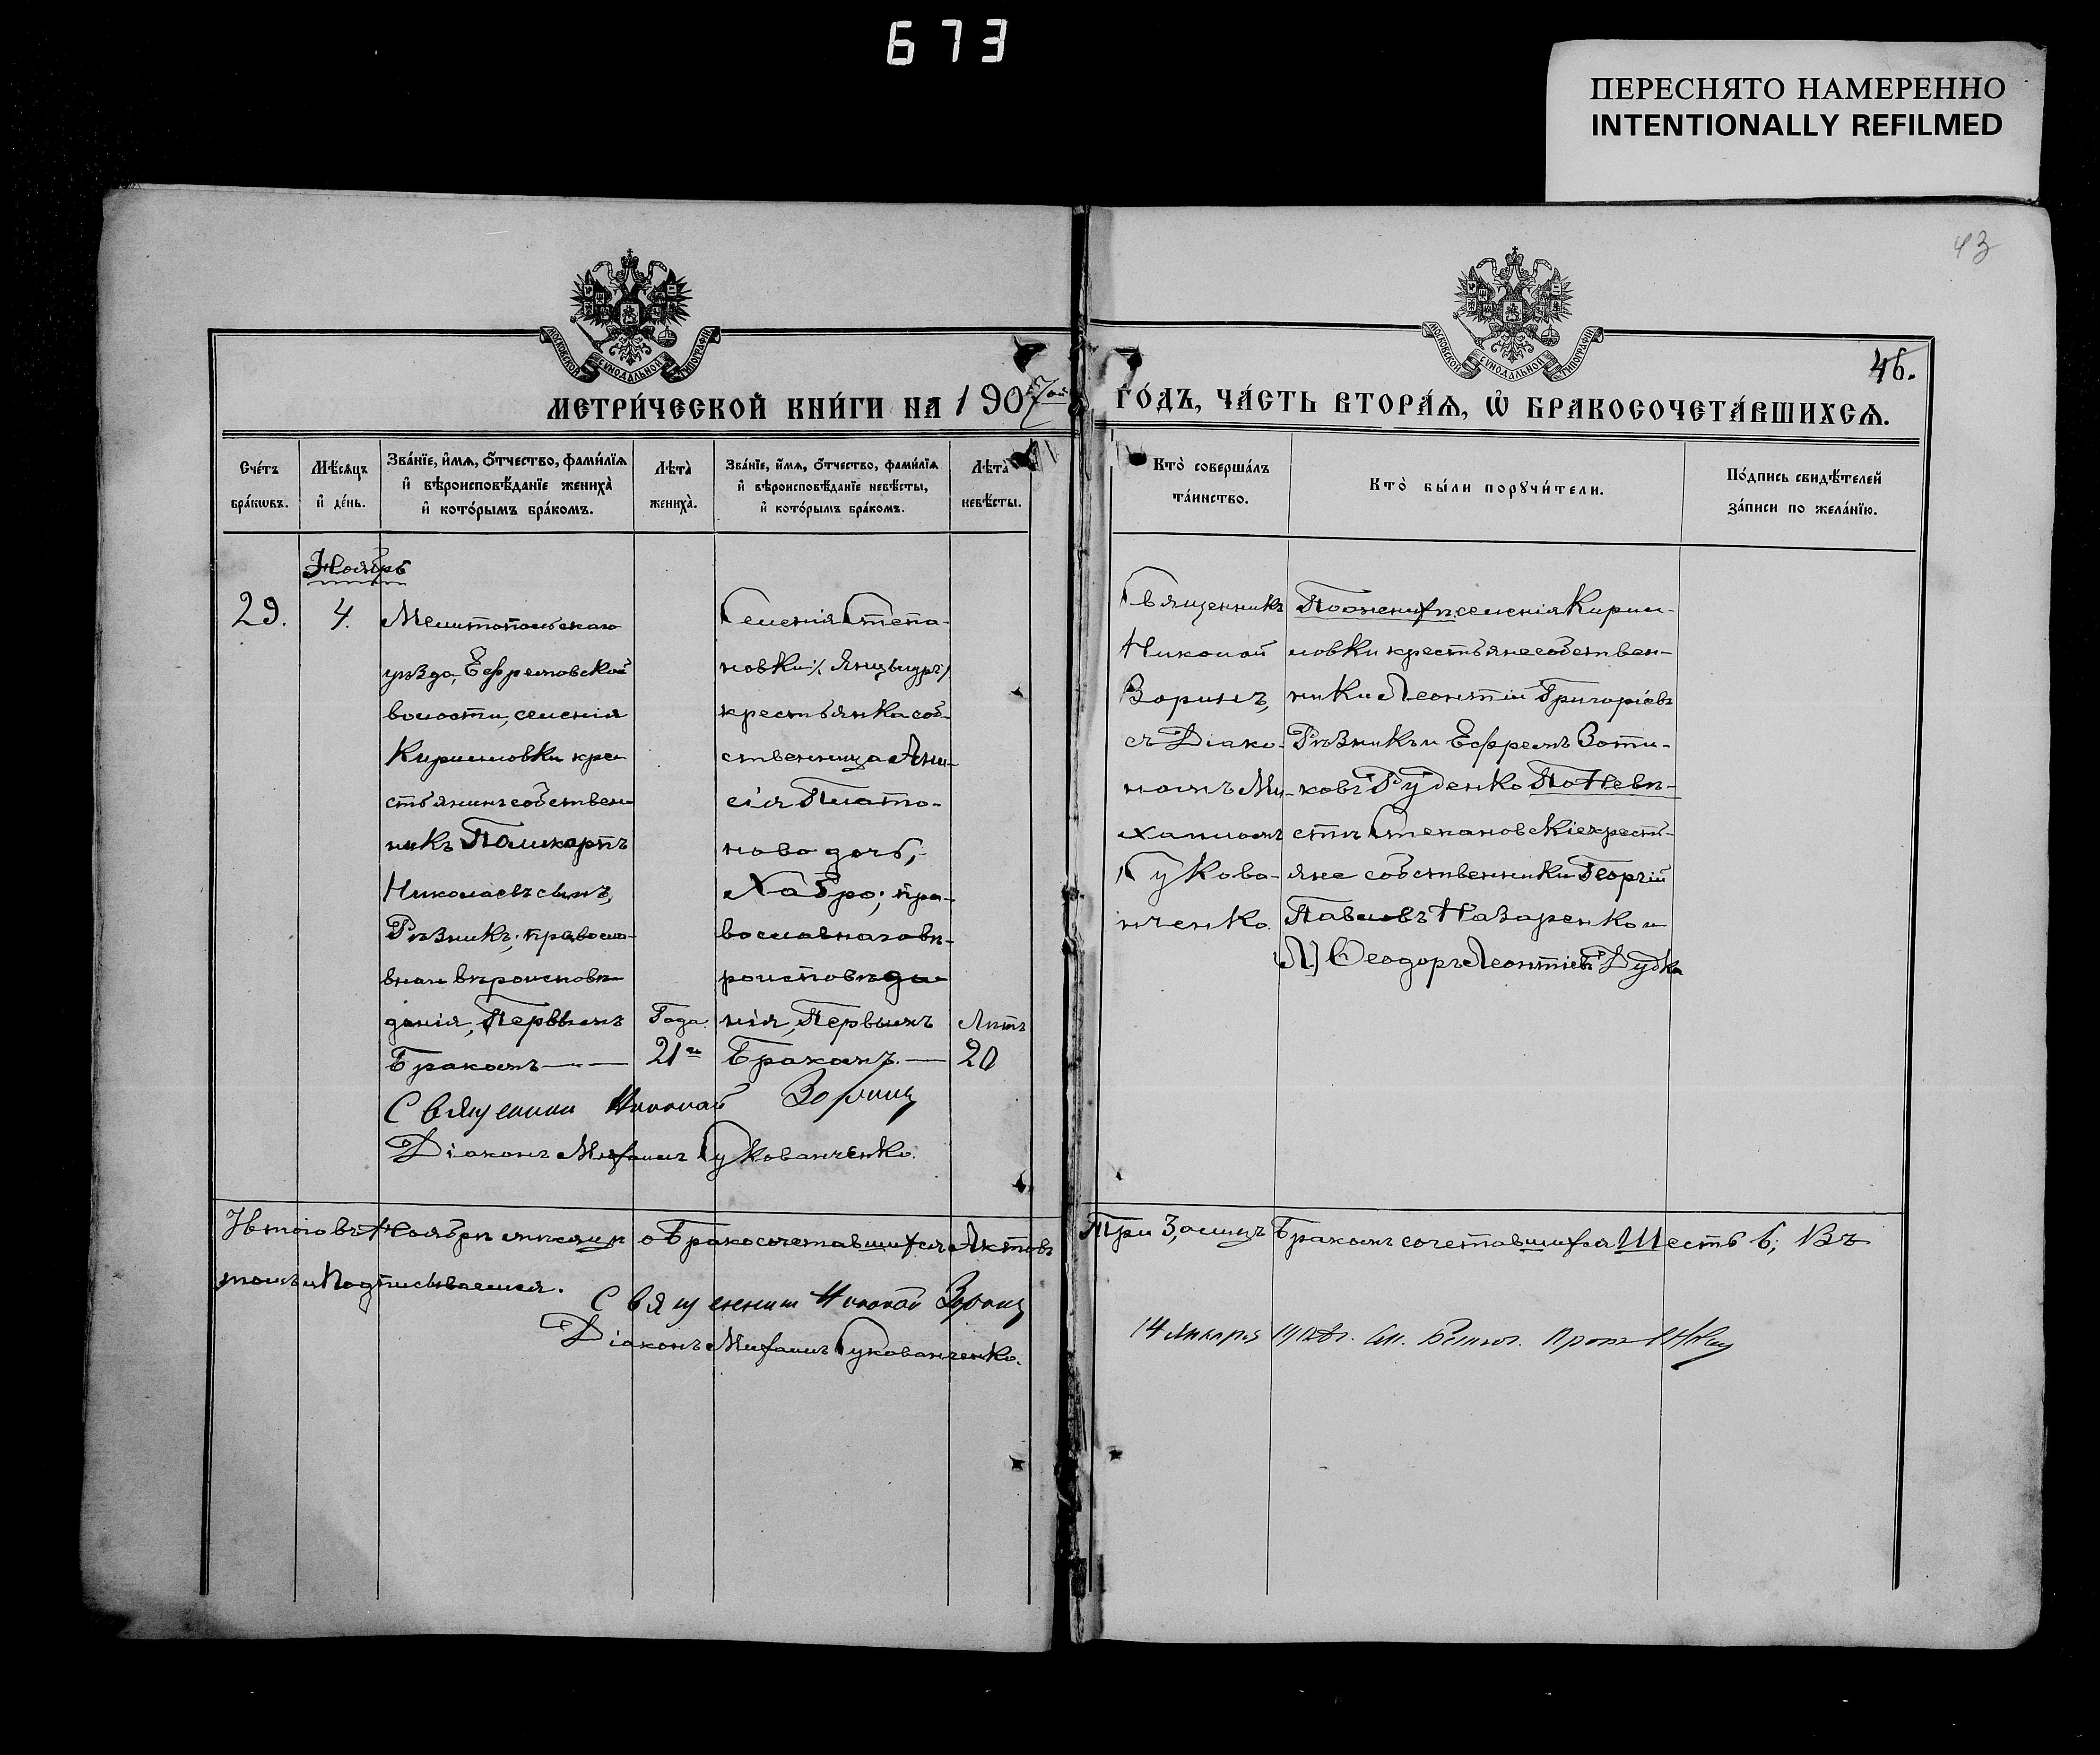 673
ПЕРЕСНЯТО НАМЕРЕННО
INTENTIONALLY REFILMED
43
МОСКОВСКОЙ СУНОДАЛЬНОЙ ТИПОГРАФІИ
МОСКОВСКОЙ СУНОДАЛЬНОЙ ТИПОГРАФІИ
46.
МЕТРИ́ЧЕСКОЙ КНИ́ГИ НА 1907ой
ГО́ДЪ, ЧА́СТЬ ВТОРА́Ѧ, Ѽ БРАКОСОЧЕТА́ВШИХСѦ.
Сче́тъ
бра́кѡвъ.
Мѣ́сѧцъ
и҆ де́нь.
Зва́нїе, и҆́мѧ, ѻ҆́тчество, фами́лїѧ
и҆ вѣроисповѣ́данїе жениха̀
и҆ кото́рымъ бра́комъ.
Лѣта̀
жениха̀.
Зва́нїе, и҆́мѧ, ѻ҆́тчество, фами́лїѧ
и҆ вѣроисповѣ́данїе невѣ́сты,
и҆ кото́рымъ бра́комъ.
Лѣта̀
невѣ́сты.
Кто̀ соверша́лъ
та́инство.
Кто̀ бы́ли порꙋчи́тели.
По́дпись свидѣ́телей
за́писи по жела́нїю.
Ноябрь
29.
4.
Мелитопольскаго
уѣзда, Ефремовской
волости, селенія
Кирилловки кре
стьянинъ собствен
никъ Поликарпъ
Николаевъ сынъ,
Рѣзникъ; правосла-
внаго вѣроисповѣ
данія, Первымъ
Бракомъ
Года
21
Селенія Степа-
новки /. Янцынды /
крестьянка соб-
ственница Ани-
сія Плато-
нова дочь,
Хабро; пра-
вославнаго вѣ-
роисповѣда
нія, Первымъ
Бракомъ.
Лѣтъ
20
Священникъ
Николай
Зоринъ,
съ Діако-
номъ Ми-
хаиломъ
Сукова-
нченко.
По Женихѣ: селенія Кирил-
ловки крестьяне собствен-
ники Леонтій Григоріевъ
Рѣзникъ и Ефремъ Зоти-
ковъ Руденко По Невѣ-
стѣ Степановскіе крестъ-
яне собственники Георгій
Павловъ Назаренко и
Л.) Ѳеодоръ Леонтіевъ Дудка
Священникъ Николай Зоринъ
Діаконъ Михаилъ Сукованченко.
Итого въ Ноябрѣ мѣсяцѣ о Бракосочетавшихся Актовъ
Три 3, а лицъ Бракомъ сочетавшихся Шесть 6; Въ
томъ и Подписываемся.
Священникъ Николай Зоринъ
Діаконъ Михаилъ Сукованченко.
14 Января 1908 г.